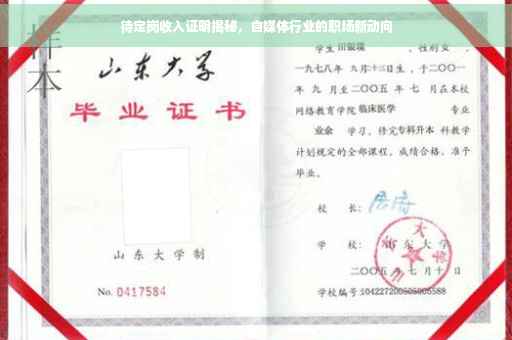 待定岗收入证明揭秘，自媒体行业的职场新动向
样本
山东大学
毕业证书
山东大学制
No. 0417584
学生 田银瑞 ，性别 女 ，
一九七八年 九月十二日生，于二〇〇一
年 九 月至二〇〇五 年 七 月在本校
网络教育学院 临床医学 专业
业余 学习，修完 专科升本 科教学
计划规定的全部课程，成绩合格，准予
毕业。
校 长：
学 校： 山东大学
二〇〇五 年 七 月十 日
学校编号:104227200505005588